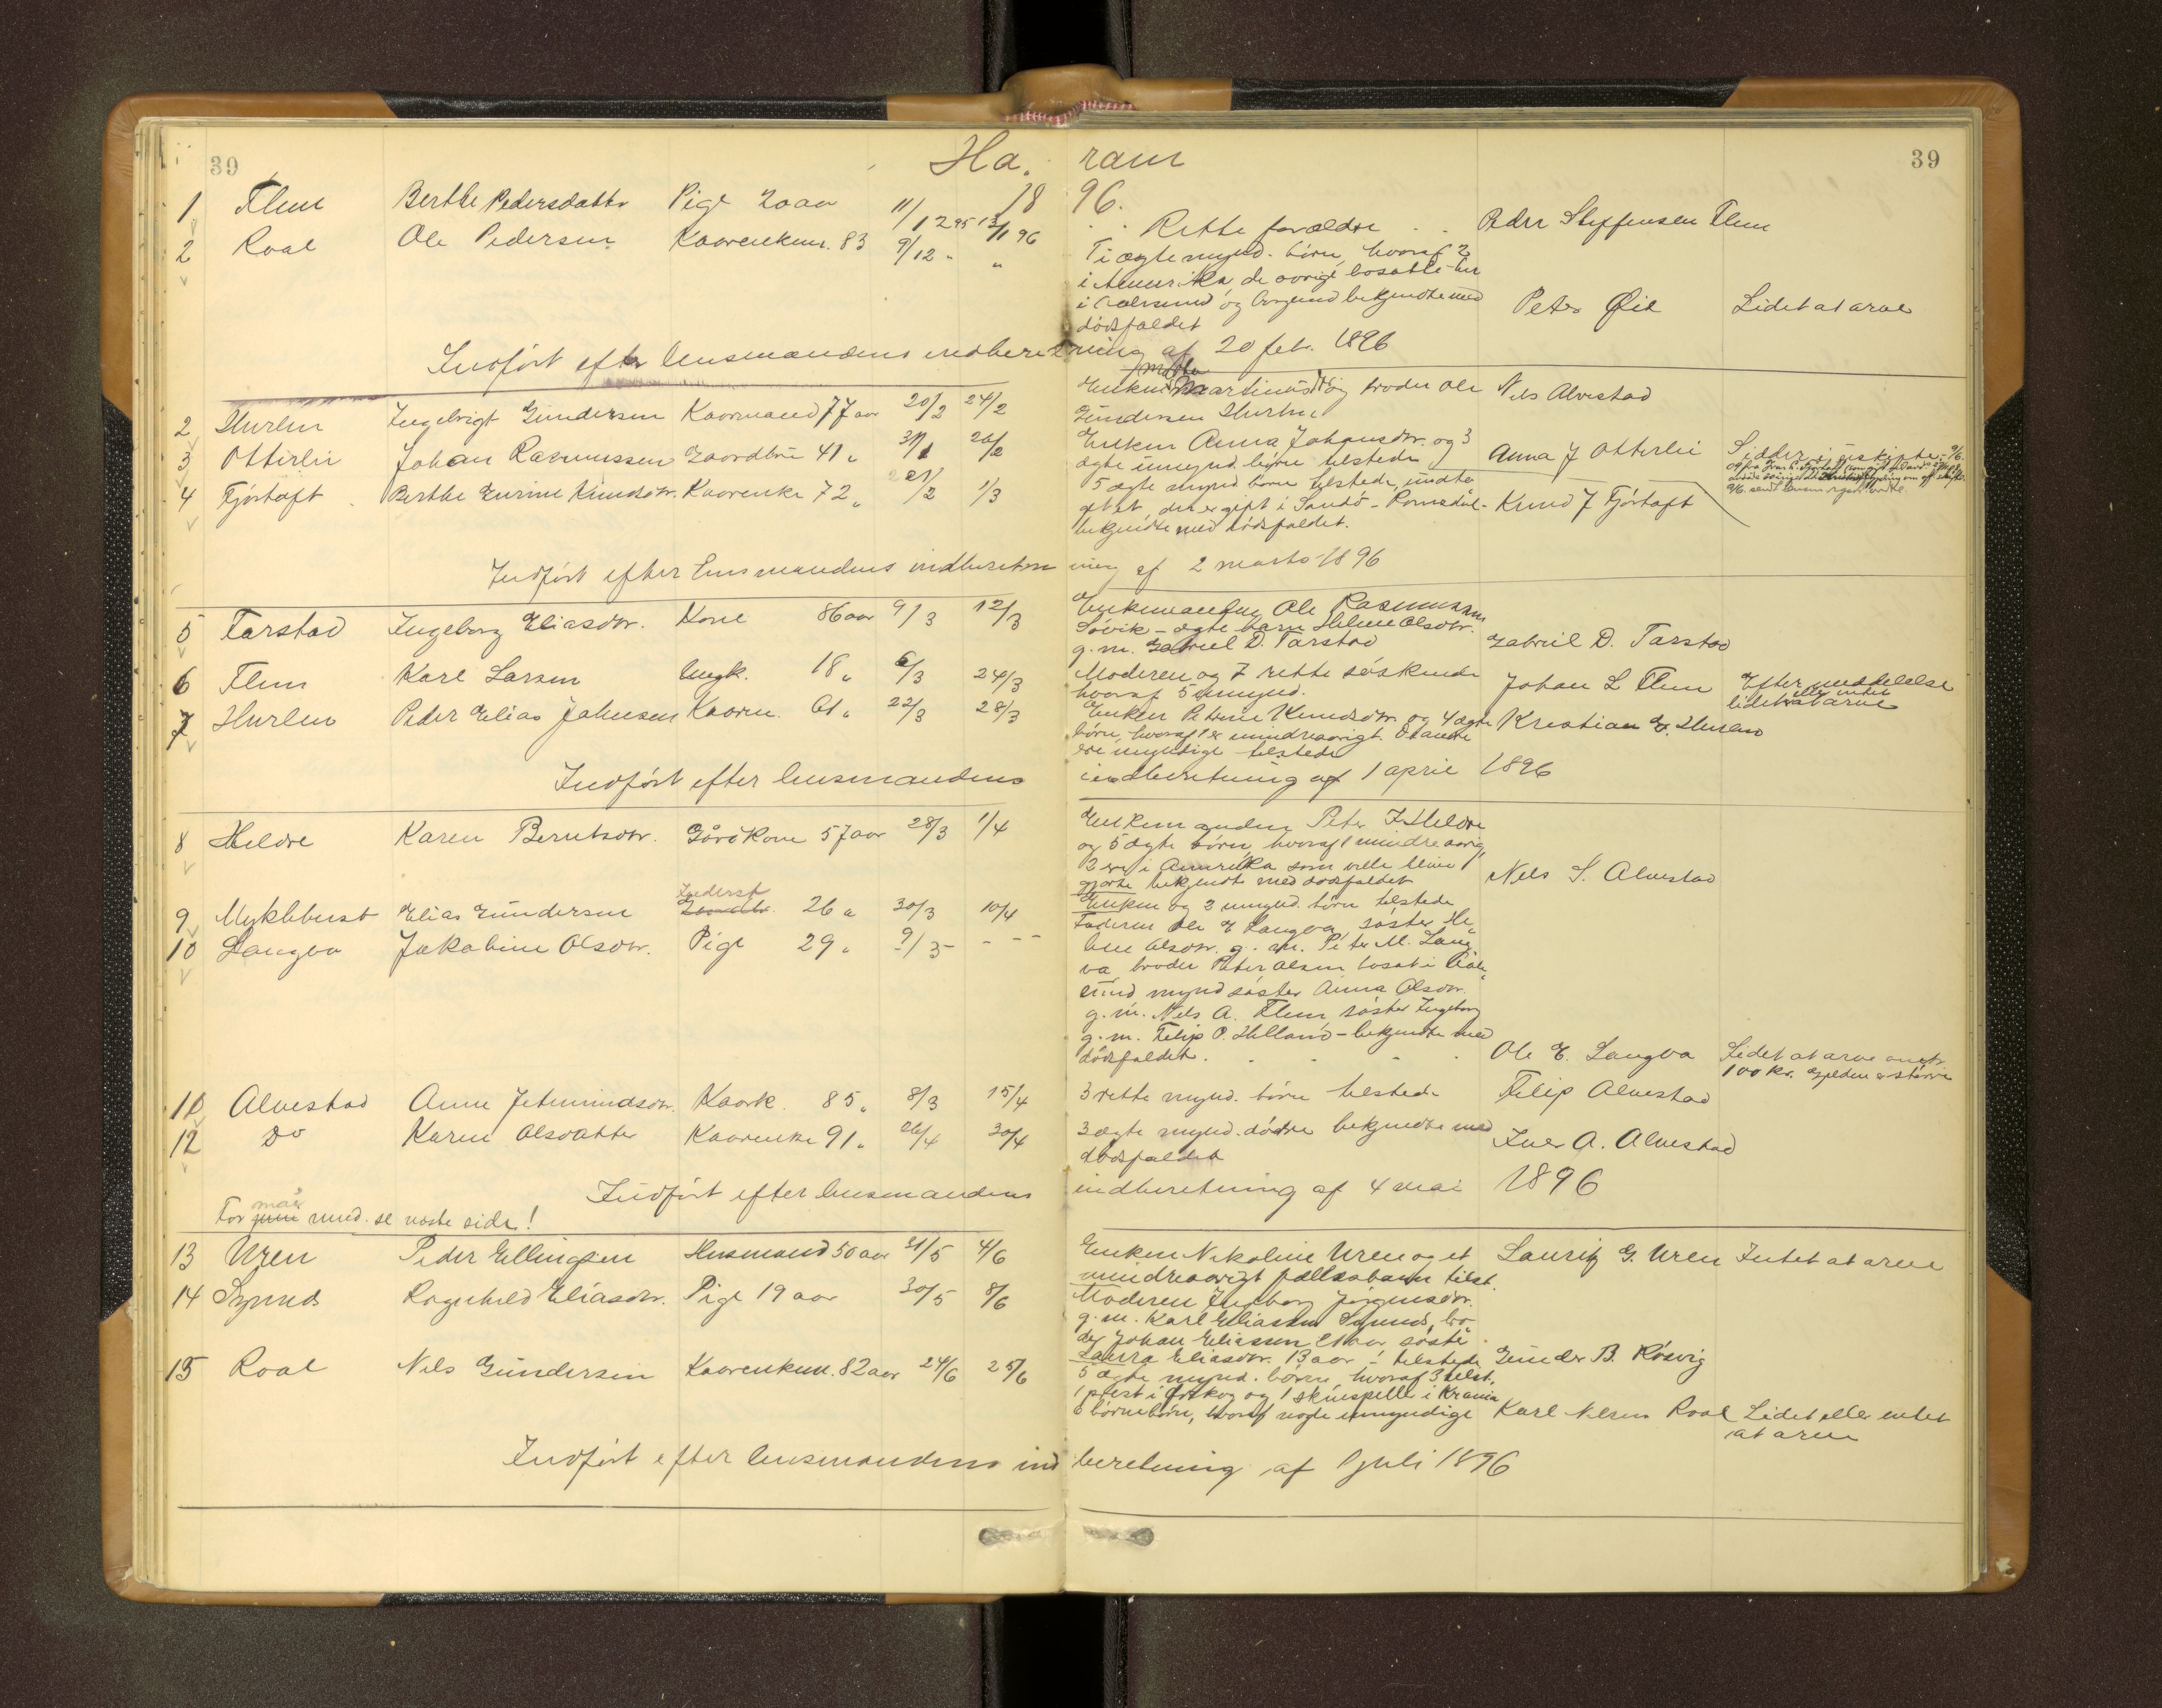 39 Haram 39
1896.
1 Flem Berthe Pedersdatter Pige 20 aar 11/12 95 13/1 96 Rette forældre Peder Steffensen Flem
2 Roal Ole Pedersen Kaarenkem. 83 9/12 " " Ti ægte mynd. børn, hvoraf 2
i Amerika, de øvrige bosatte her
i Aalesund og Borgund bekjendte med
dødsfaldet Peter Øie Lidet at arve
Indført efter lensmandens indberetning af 20 feb. 1896
2 Hurlen Ingebrigt Gundersen Kaarmand 77 aar 20/2 24/2 Enken Martha Martinusdtr og broder Ole Nils Alvestad
Gundersen Hurlen
3 Otterlei Johan Rasmussen Gaardbr. 41 " 31/1 20/2 Enken Anna Johansdtr. og 3
ægte umynd. børn tilstede Anna J Otterlei Sidder i uskifte
4 Fjørtoft Berthe Gurine Knudsdtr. Kaarenke 72 " 21/2 1/3 5 ægte mynd børn tilstede, undta
get et, der er gift i Sandø - Romsdal - Knud J Fjørtoft
bekjendte med dødsfaldet.
Indført efter lensmandens indberetning af 2 marts 1896
5 Farstad Ingeborg Eliasdtr. Kone 86 aar 9/3 12/3 Enkemanden Ole Rasmussen
Søvik - ægte barn Helene Olsdtr.
g. m. Gabriel D. Farstad Gabriel D. Farstad
6 Flem Karl Larsen Ungk. 18 " 6/3 24/3 Moderen og 7 rette søskende
hvoraf 5 umynd. Johan L Flem Efter meddelelse
lidet eller intet at arve
7 Hurlen Peder Elias Johnsen Kaarm. 61 " 22/3 28/3 Enken Petrine Knudsdtr. og 4 ægte Kristian E. Hurlen
børn, hvoraf 1 er mindreaarigt. De andre
ere myndige tilstede
Indført efter lensmandens indberetning af 1 april 1896
8 Hildre Karen Berntsdtr. Gårdkone 57 aar 28/3 1/4 Enkemanden Peter J Hildre
og 5 ægte børn, hvoraf 1 mindreaarig,
2 ere i Amerika som ville blive
gjorte bekjendt med dødsfaldet Nels S. Alvestad
9 Myklebust Elias Gundersen Inderst 26 " 30/3 10/4 Enken og 2 umynd. børn tilstede
10 Langva Jakobine Olsdtr. Pige 29 " 9/3 - - - Faderen Ole E Langva, søster He-
lene Olsdtr. g. m. Peter M. Lang-
va, broder Peter Olsen bosat i Aale-
sund mynd søster Anna Olsdtr.
g. m. Nils A. Flem søster Ingeborg
g. m. Filip O. Helland - bekjendte med
dødsfaldet. Ole E. Langva Lidet at arve angtr.
100 kr. gjelden er større
11 Alvestad Anne Jetmundsdtr. Kaark. 85 " 8/3 15/4 3 rette mynd. børn tilstede Filip Alvestad
12 Do Karen Olsdatter Kaarenke 91 " 26/4 30/4 3 ægte mynd. døtre bekjendte med
dødsfaldet Iver A. Alvestad
Indført efter lensmandens indberetning af 4 mai 1896
For juni mai mnd. se næste side!
13 Uren Peder Ellingsen Husmand 50 aar 31/5 4/6 Enken Nikoline Uren og et Lauritz G. Uren Intet at arve
mindreaarigt fællesbarn tilst.
14 Synnes Ragnhild Eliasdtr. Pige 19 aar 30/5 8/6 Moderen Ingeborg Jørgensdtr.
g. m. Karl Eliassen Synnes, bro-
der Johan Eliassen 21 aar søster
Laura Eliasdtr. 13 aar - tilstede Gunder B. Røsvig
15 Roal Nils Gundersen Kaarenkem. 82 aar 24/6 25/6 5 ægte mynd. børn, hvoraf 3 tilst.
1 prest i Ørskog og 1 skuespiller i Krania
6 børnebørn, hvoraf nogle umyndige Karl Nilsen Roal Lidet eller intet
at arve
Indført efter lensmandens indberetning af 1 juli 1896